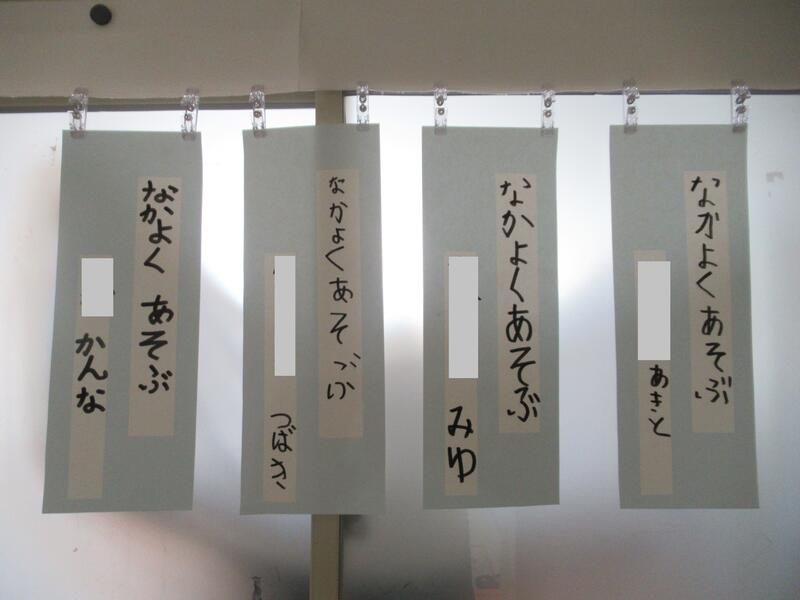 なかよくあそぶ
あきと
なかよくあそぶ
みゆ
なかよくあそぶ
つばき
なかよく あそぶ
かんな